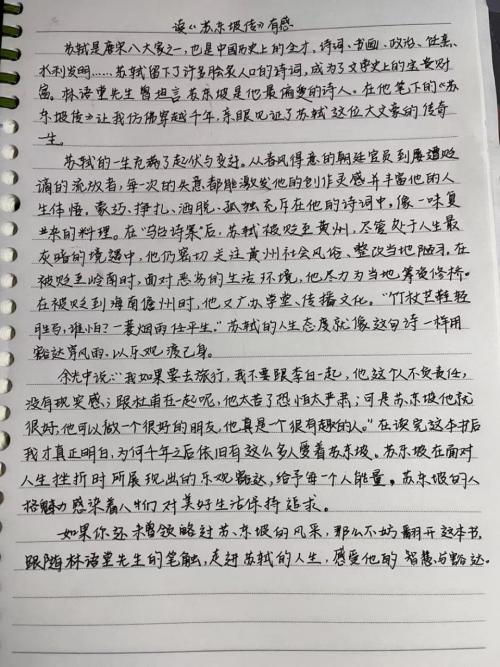 读《苏东坡传》有感
苏轼是唐宋八大家之一，也是中国历史上的全才，诗词、书画、政治、烹煮、
水利发明……苏轼留下了许多脍炙人口的诗词，成为了文学史上的宝贵财
富。林语堂先生曾坦言苏东坡是他最偏爱的诗人。在他笔下的《苏
东坡传》让我仿佛穿越千年，亲眼见证了苏轼这位大文豪的传奇
一生。
苏轼的一生充满了起伏与变迁。从春风得意的朝廷官员到屡遭贬
谪的流放者，每一次的失意都能激发他的创作灵感并丰富他的人
生体悟。豪巧、挣扎、洒脱、孤独充斥在他的诗词中，像一味复
杂的料理。在“乌台诗案”后，苏轼被贬至黄州，尽管处于人生最
灰暗的境遇中，他仍密切关注黄州社会风俗、整改当地陋习。在
被贬至岭南时，面对恶劣的生活环境，他尽力为当地筹资修桥。
在被贬到海南儋州时，他又广办学堂、传播文化。“竹杖芒鞋轻
胜马，谁怕？一蓑烟雨任平生。”苏轼的人生态度就像这句诗一样用
豁达穿风雨，以乐观渡己身。
余光中说：“我如果要去旅行，我不要跟李白一起，他这个人不负责任，
没有现实感；跟杜甫在一起呢，他太苦了恐怕太严肃；可是苏东坡他就
很好，他可以做一个很好的朋友，他真是一个很有趣的人。”在读完这本书后
我才真正明白，为何千年之后依旧有这么多人爱着苏东坡。苏东坡在面对
人生挫折时所展现出的乐观豁达，给予每一个人能量。苏东坡的人
格魅力感染着人们对美好生活保持追求。
如果你还未曾领略过苏东坡的风采，那么不妨翻开这本书，
跟随林语堂先生的笔触，走进苏轼的人生，感受他的智慧与豁达。